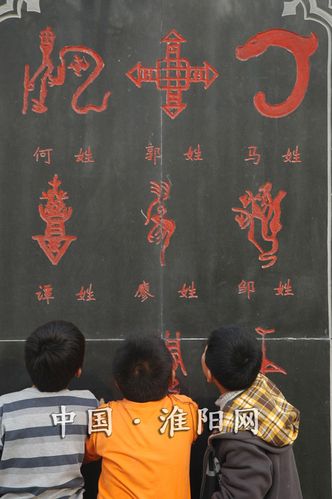 何 姓 郭 姓 马 姓
谭 姓 廖 姓 邹 姓
中国·淮阳网